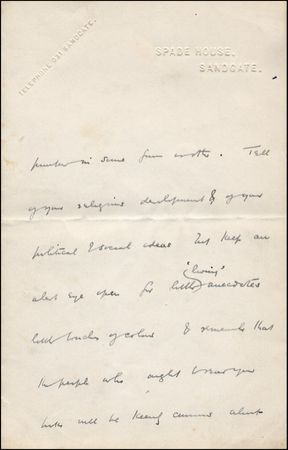 TELEPHONE 031 SANDGATE.
SPADE HOUSE,
SANDGATE.
in some form or other. Tell
of your religious development & of your
political & social ideas but keep an
alert eye open for little "living" anecdotes
little touches of colour & remember that
the people who ought to
will be keenly curious about